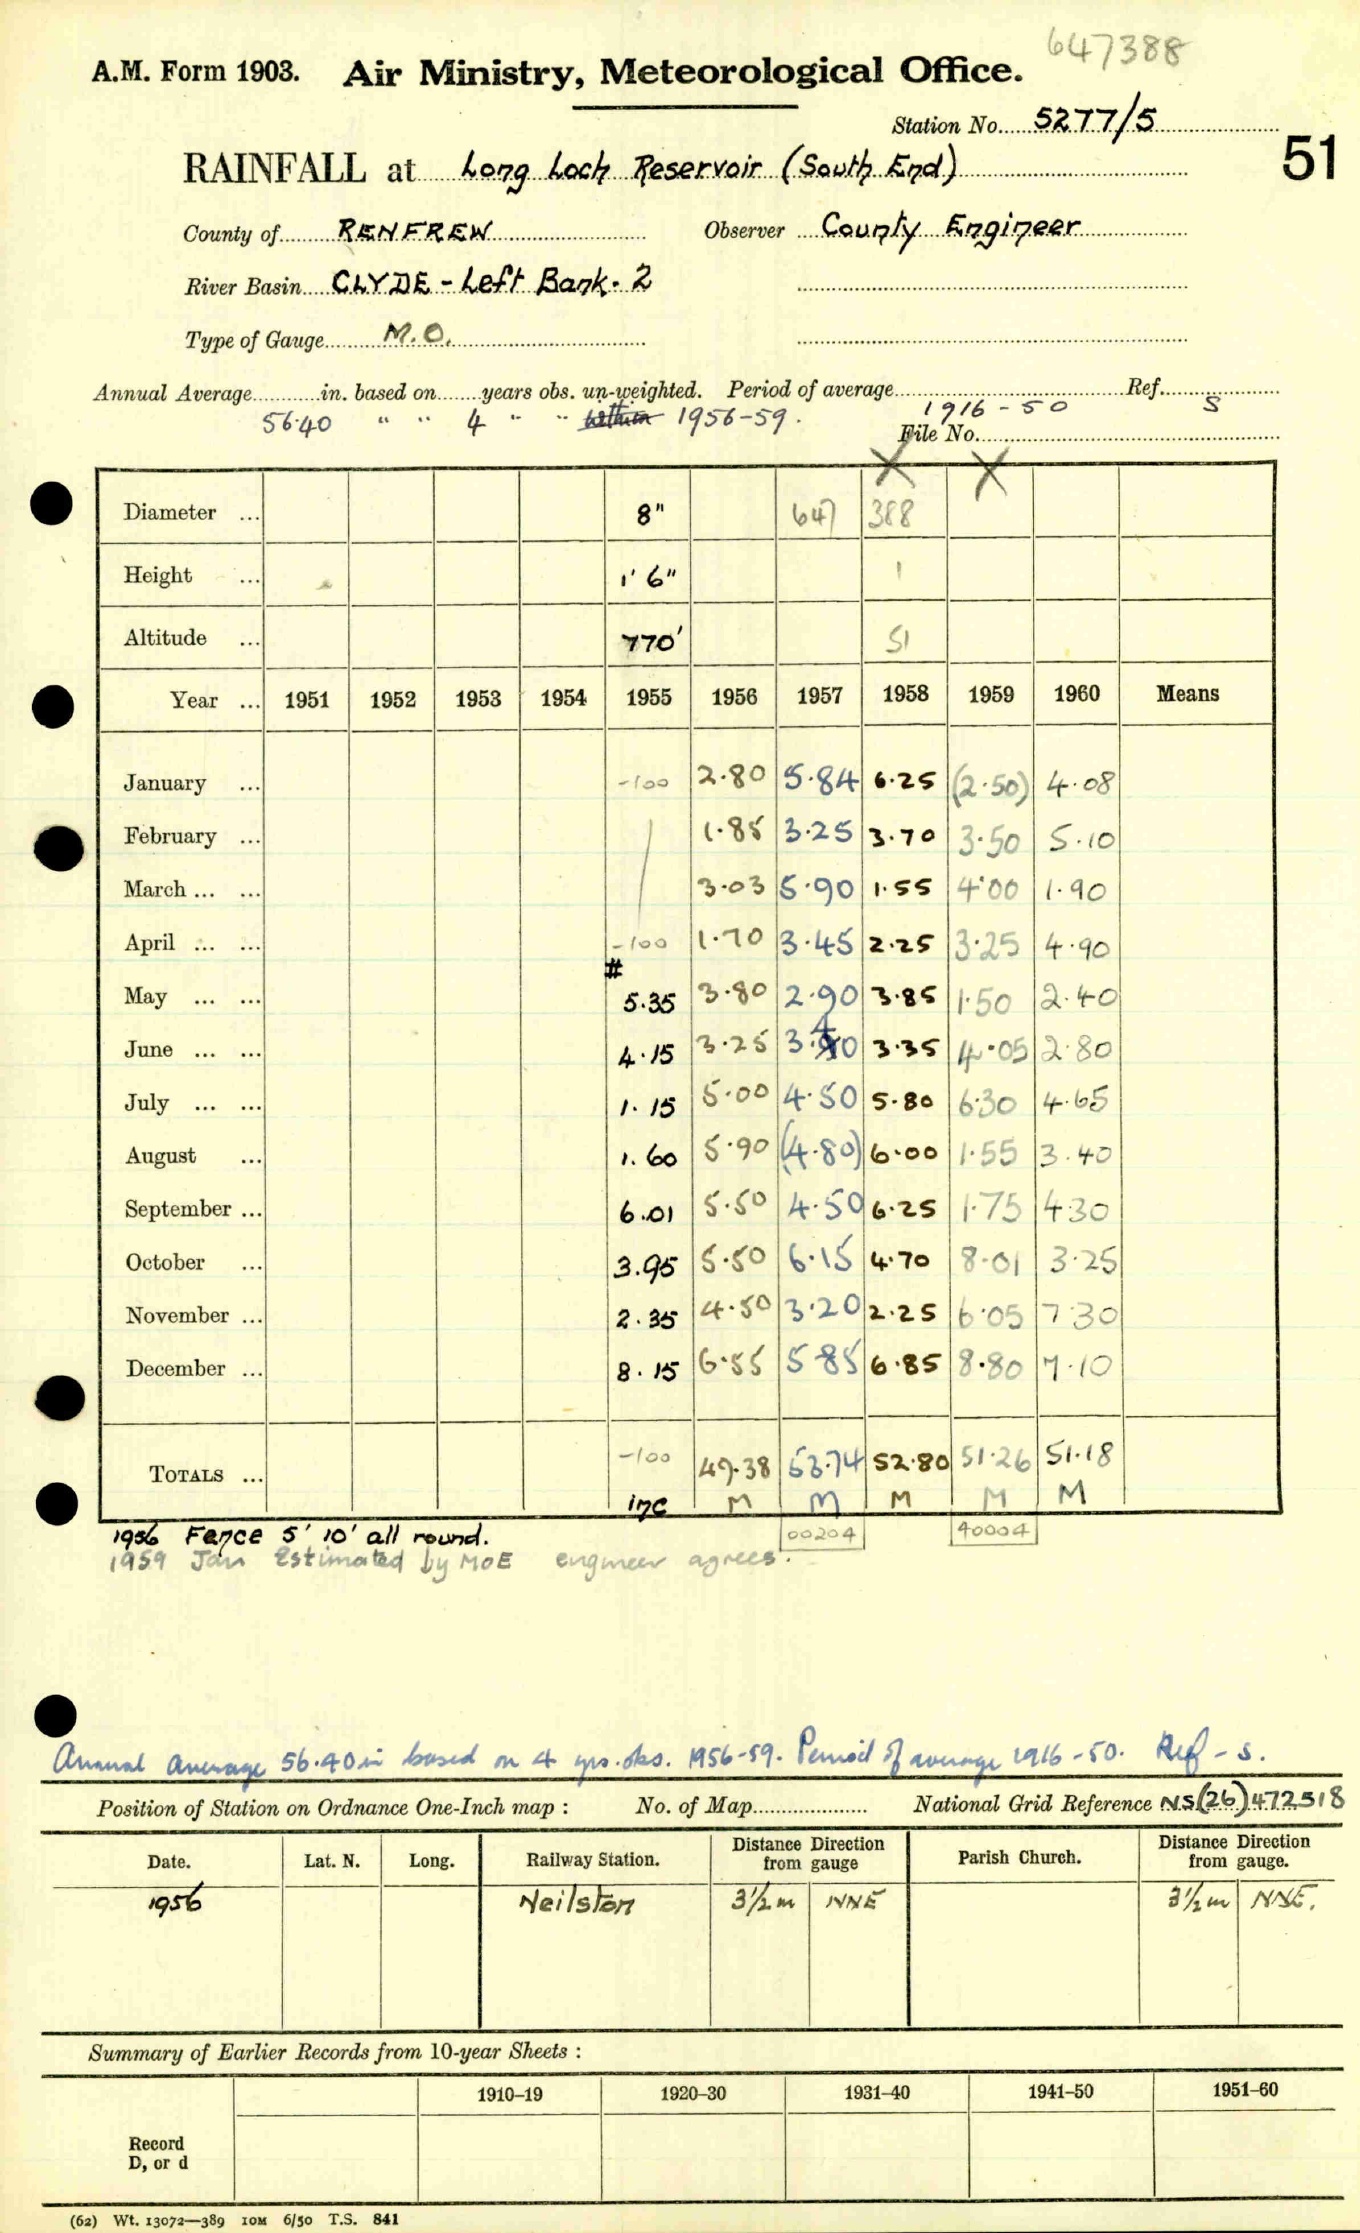 647388
A.M. Form 1903. Air Ministry, Meteorological Office.
Station No. 5277/5
51
RAINFALL at Long Loch Reservoir (South End)
County of RENFREW Observer County Engineer
River Basin CLYDE - Left Bank. 2
Type of Gauge M.O.
Annual Average in. based on years obs. un-weighted. Period of average Ref.
56.40 " " 4 " " 1956-59. 1916-50 S
File No.
X X
Diameter ... 8" 647 388
Height ... 1' 6" 1
Altitude ... 770' 51
Year ... 1951 1952 1953 1954 1955 1956 1957 1958 1959 1960 Means
January ... -100 2.80 5.84 6.25 (2.50) 4.08
February ... 1.85 3.25 3.70 3.50 5.10
March ... ... 3.03 5.90 1.55 4.00 1.90
April ... ... -100 1.70 3.45 2.25 3.25 4.90
#
May ... ... 5.35 3.80 2.90 3.85 1.50 2.40
June ... ... 4.15 3.25 3.40 3.35 4.05 2.80
July ... ... 1.15 5.00 4.50 5.80 6.30 4.65
August ... 1.60 5.90 (4.80) 6.00 1.55 3.40
September ... 6.01 5.50 4.50 6.25 1.75 4.30
October ... 3.95 5.50 6.15 4.70 8.01 3.25
November ... 2.35 4.50 3.20 2.25 6.05 7.30
December ... 8.15 6.55 5.85 6.85 8.80 7.10
TOTALS ... -100 49.38 53.74 52.80 51.26 51.18
inc M M M M M
1956 Fence 5' 10' all round. 00204 40004
1959 Jan Estimated by MOE engineer agrees.
Annual average 56.40 in based on 4 yrs. obs. 1956-59. Period of average 1916-50. Ref - S.
Position of Station on Ordnance One-Inch map : No. of Map National Grid Reference NS(26)472518
Date. Lat. N. Long. Railway Station. Distance Direction from gauge Parish Church. Distance Direction from gauge.
1956 Neilston 3½ m NNE 3½ m NNE.
Summary of Earlier Records from 10-year Sheets :
1910–19 1920–30 1931–40 1941–50 1951–60
Record
D, or d
(62) Wt. 13072—389 10M 6/50 T.S. 841